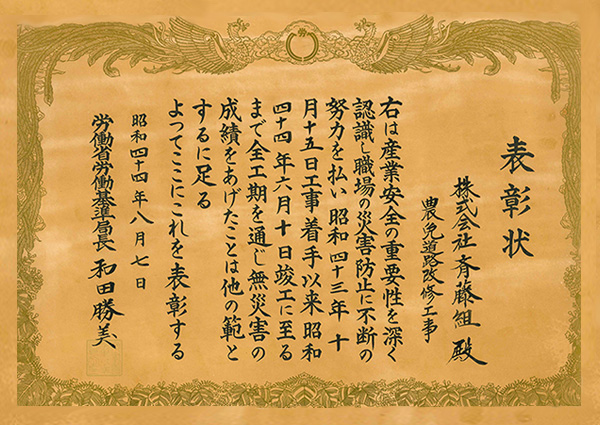 表彰状
株式会社斉藤組殿
農免道路改修工事
右は産業安全の重要性を深く
認識し職場の災害防止に不断の
努力を払い昭和四十三年十
月十五日工事着手以来昭和
四十四年六月十日竣工に至る
まで全工期を通じ無災害の
成績をあげたことは他の範と
するに足る
よってここにこれを表彰する
昭和四十四年八月七日
労働省労働基準局長 和田勝美